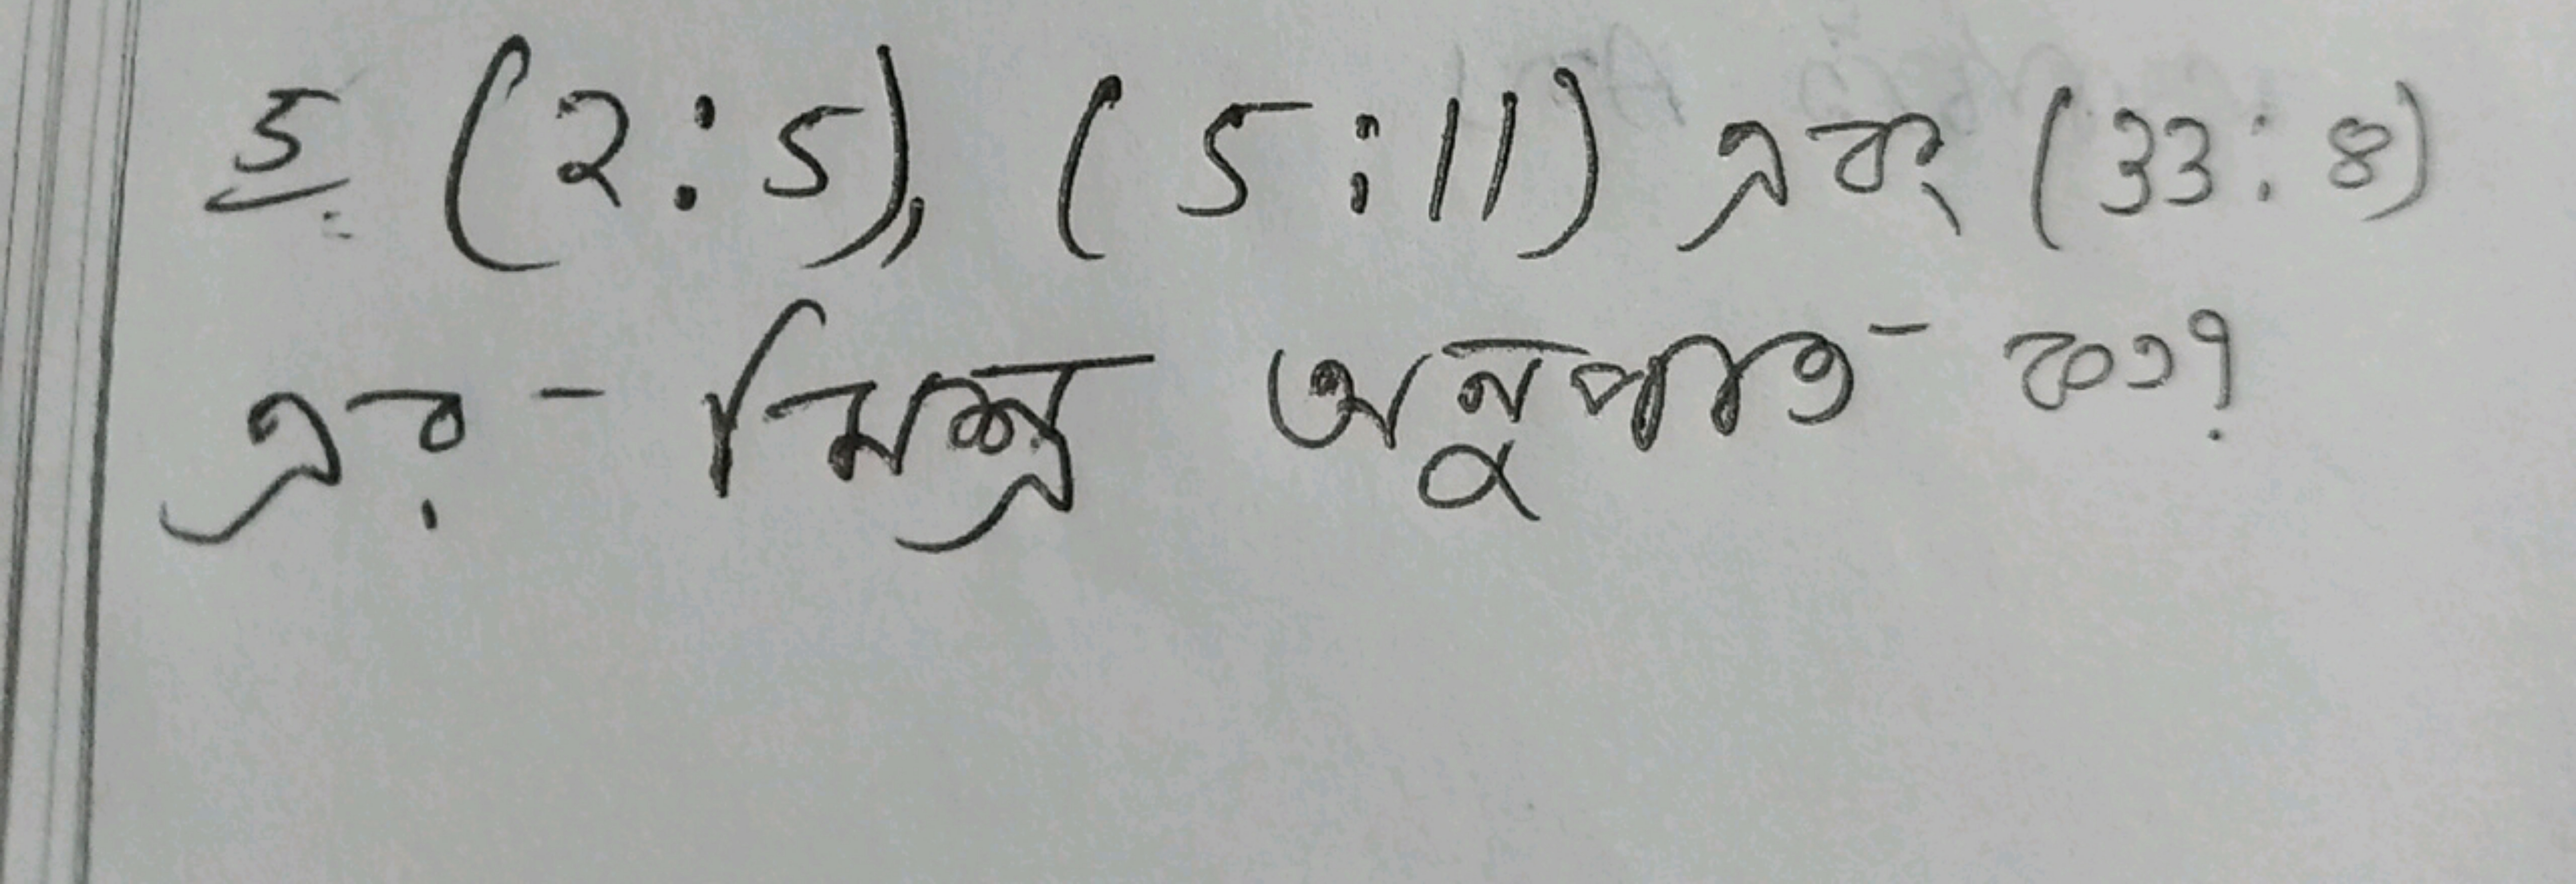 5. (2:5), (5:11) এবং (33:8)
এর - মিশ্র অনুপাত - কত?